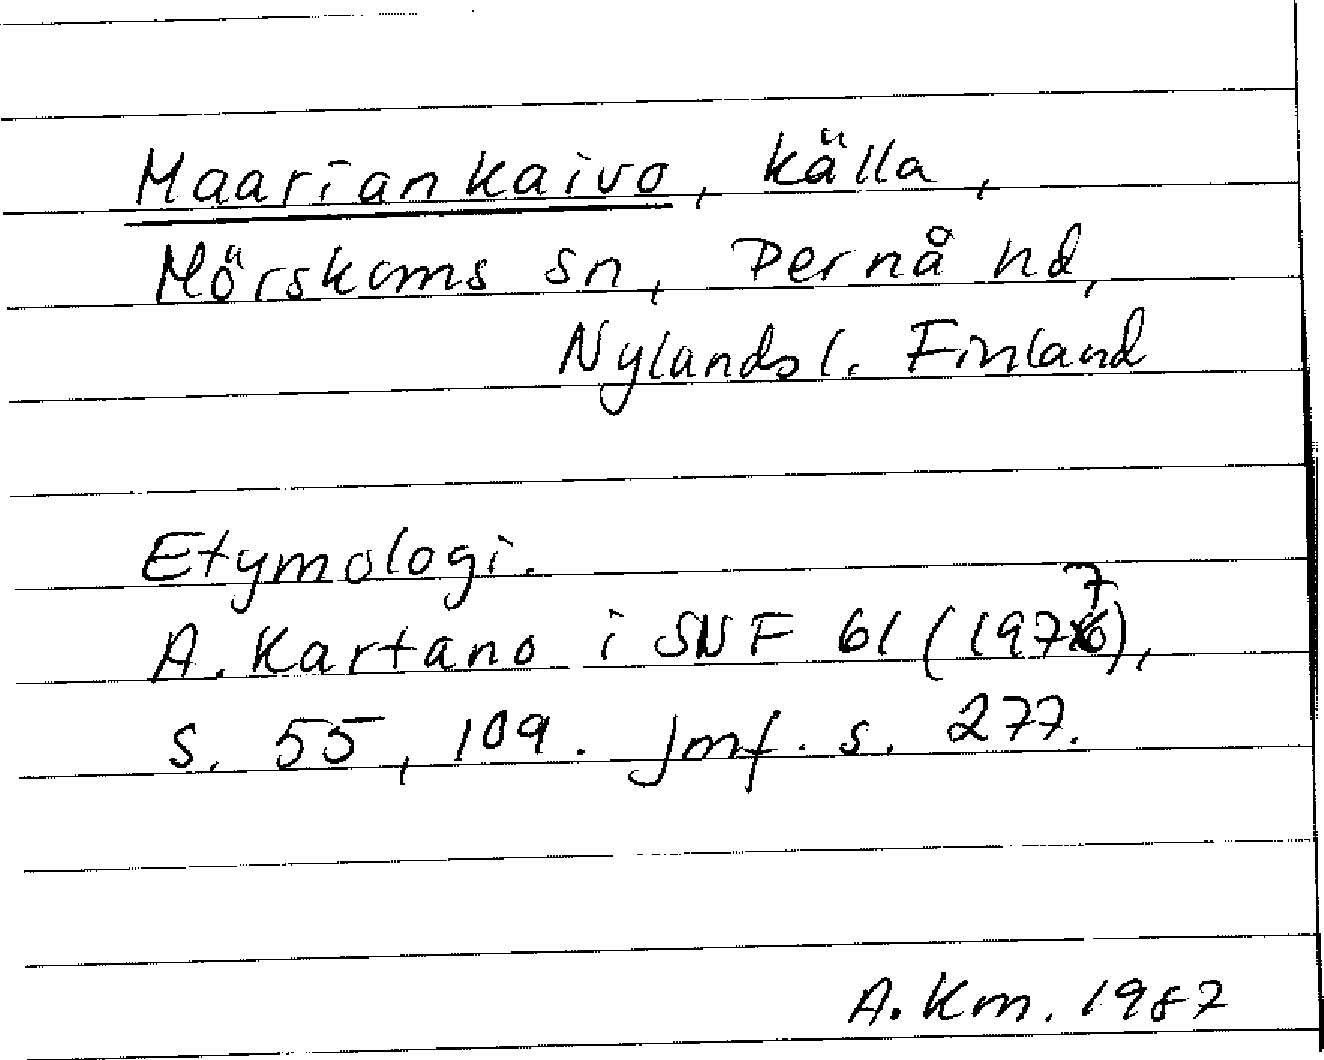 Maariankaivo, källa,
Mörskoms sn, Pernå hd,
Nylands l. Finland
Etymologi.
A. Kartano i SNF 61 (1977),
s. 55, 109. Jmf. s. 277.
A. Km. 1987